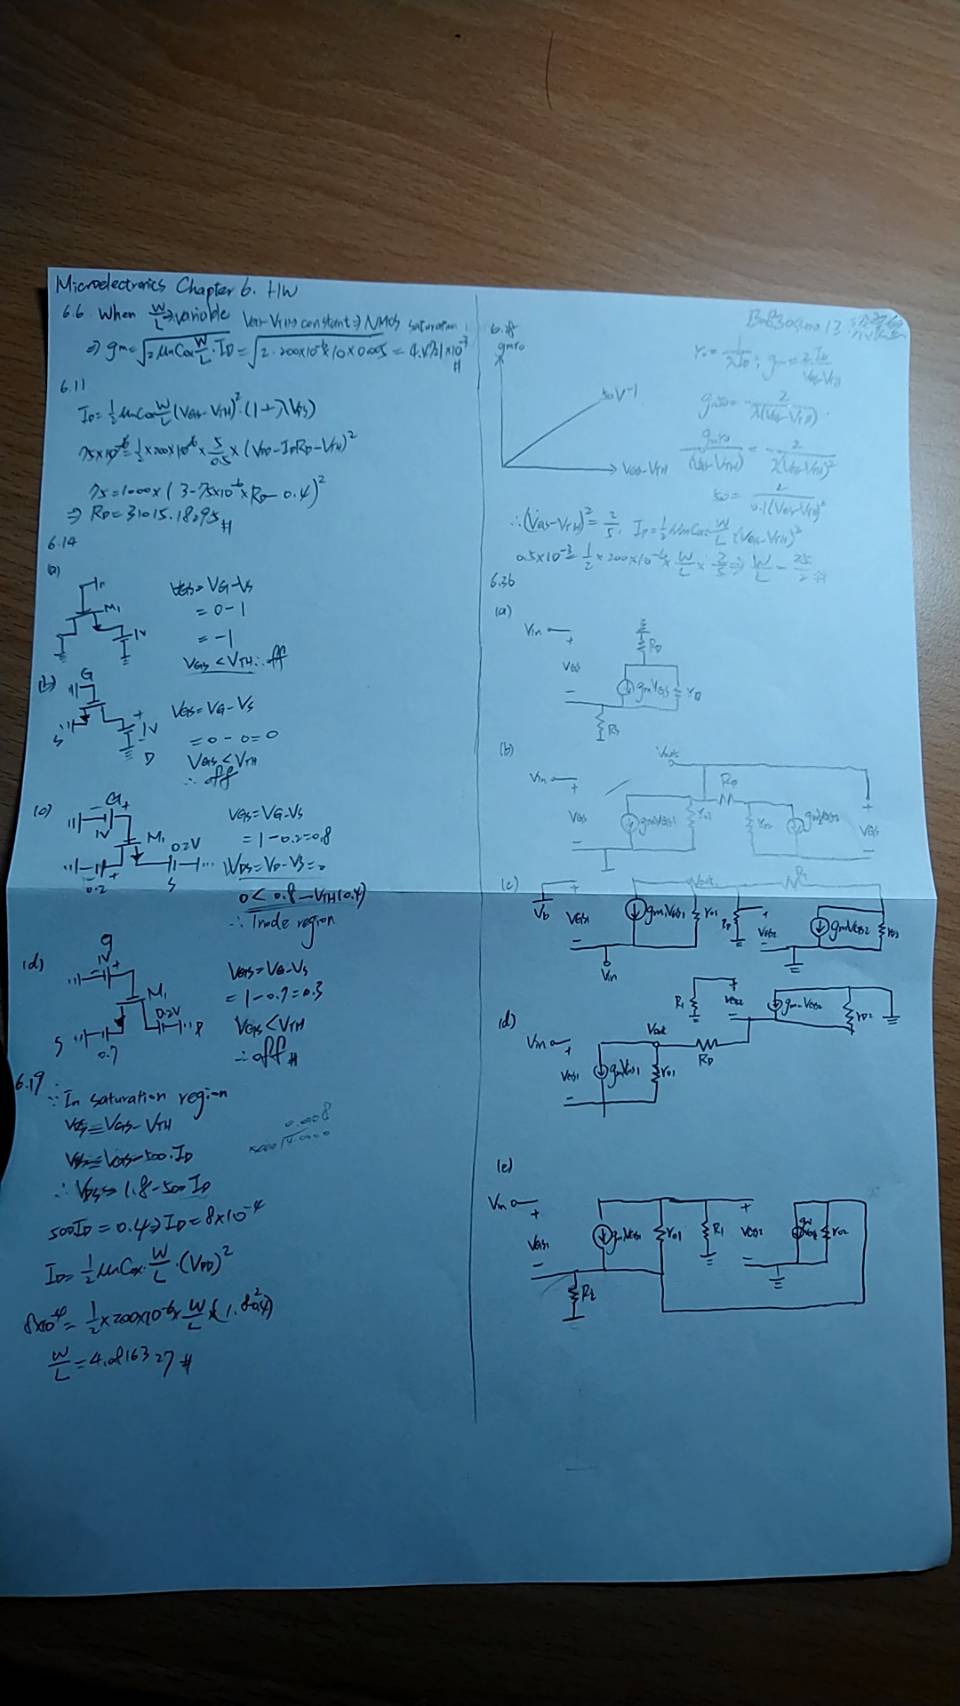 Microelectronics Chapter 6. HW
6.6 When W/L ⇒ variable VGS-VTH ⇒ constant ⇒ NMOS saturation
⇒ gm = √(2 μnCox W/L · ID) = √(2 · 200×10^-6 × 10 × 0.005) =
6.11
ID = 1/2 μnCox W/L (VGS-VTH)^2 · (1+λVDS)
75×10^-6 = 1/2 × 200×10^-6 × 5/0.5 × (VDD-IDRD-VTH)^2
75 = 1000 × (3-75×10^-6 × RD - 0.4)^2
⇒ RD = 31015.18295 #
6.14
(a)
M1
1V
VGS = VG-VS
= 0-1
= -1
VGS < VTH ∴ off
(b)
G
S
1V
D
VGS = VG-VS
= 0-0 = 0
VGS < VTH
∴ off
(c)
G
1V
M1
0.2V
0.2
S
VGS = VG-VS
= 1-0.2 = 0.8
VDS = VD-VS = 0
0 < 0.8 - VTH(0.4)
∴ Triode region
(d)
g
1V
M1
0.2V
S
0.7
VGS = VG-VS
= 1-0.7 = 0.3
VGS < VTH
∴ off #
6.19 ∵ In saturation region
VDS = VGS - VTH
∴ VDS = 1.8-500ID
500ID = 0.4 ⇒ ID = 8×10^-4
ID = 1/2 μnCox · W/L · (VDD)^2
8×10^-4 = 1/2 × 200×10^-6 × W/L ×
W/L = 4.0816327 #
gmro
50V^-1
VGS-VTH
ro = 1/λID ; gm = 2ID/VGS-VTH
gmro = 2/λ(VGS-VTH)
gmro/(VGS-VTH) = 2/λ(VGS-VTH)^2
50 = 2/0.1(VGS-VTH)^2
∴ (VGS-VTH)^2 = 2/5, ID = 1/2 μnCox W/L (VGS-VTH)^2
0.5×10^-3 = 1/2 × 200×10^-6 × W/L × 2/5 ⇒ W/L = 25/2 #
6.36
(a)
Vin
VGS
RD
gmVGS
ro
RS
(b)
Vin
Vout
VGS
gmVGS1
ro1
RD
ro2
gmVGS2
VGS
(c)
Vb
VGS1
Vin
gmVGS1
ro1
Vout
VGS2
gmVGS2
ro2
(d)
Vin
VGS1
gmVGS1
ro1
Vout
RD
R1
VGS2
gm VGS2
ro2
(e)
Vin
VGS1
gmVGS1
ro1
R1
VGS2
ro2
R2